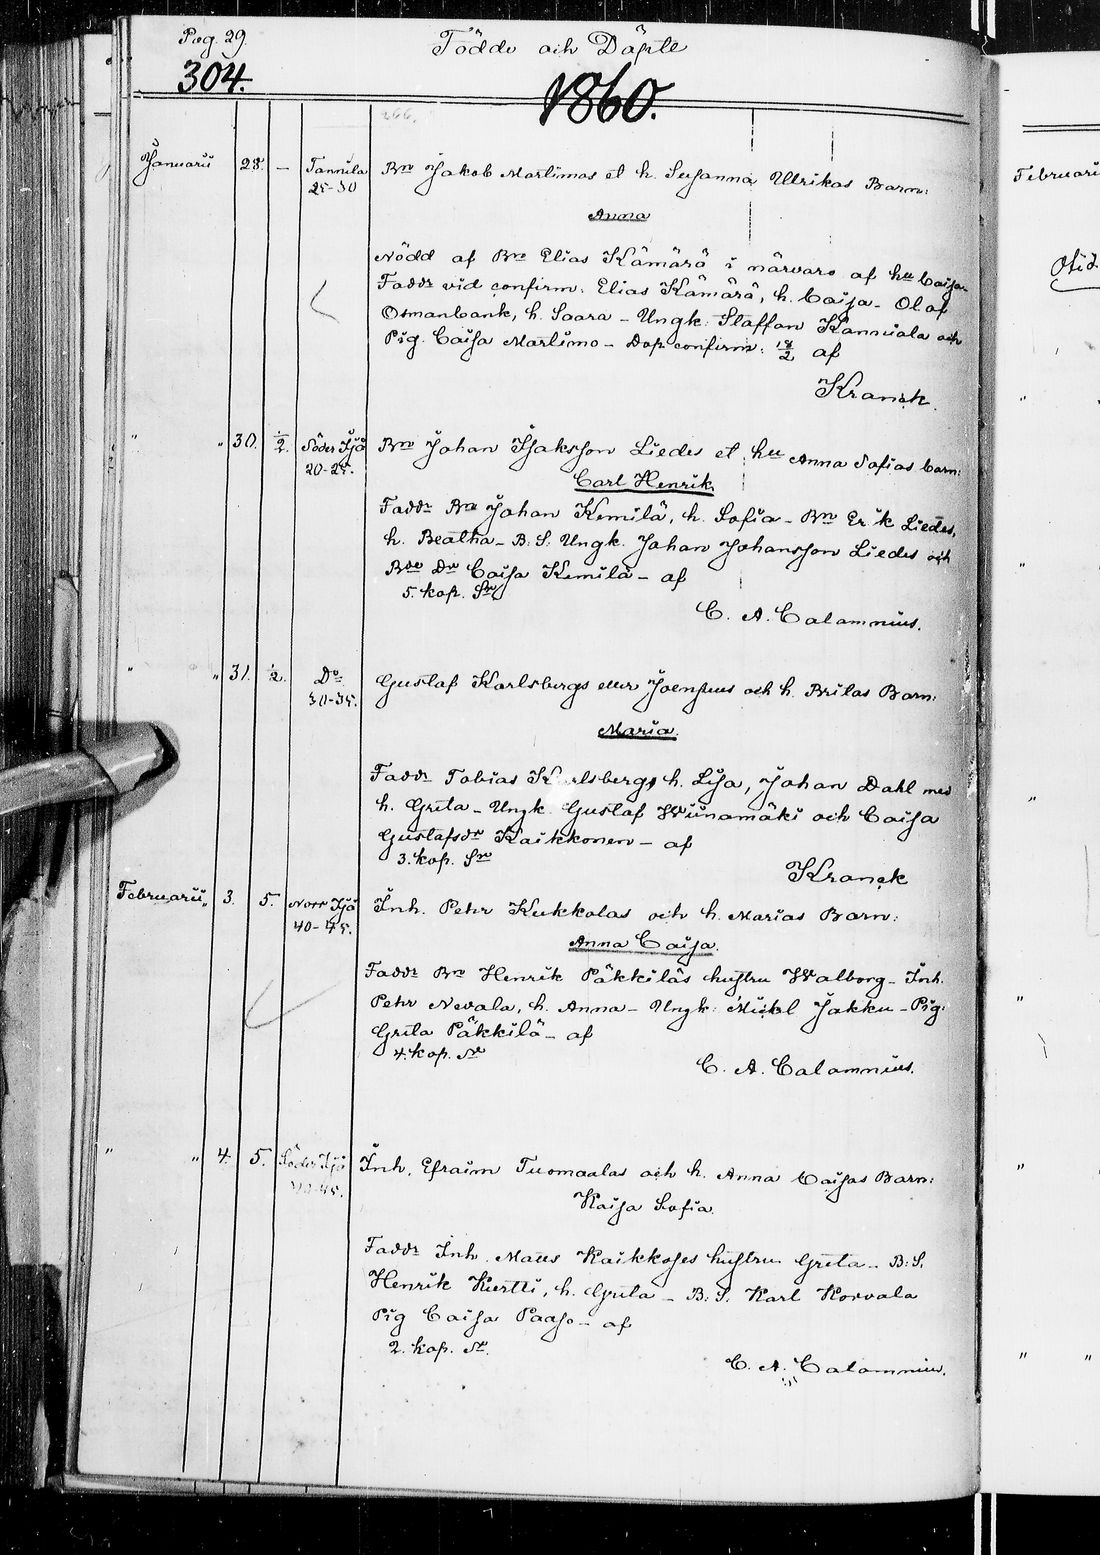 Pag. 29.
Födde och Döpte
304.
1860.
266.
Januarii 28. – Tannila Bn Jakob Martimos et h. Susanna Ulrikas Barn:
25-30
Anna
Nödd af Bn Elias Kämärä i närvaro af hu Caisa
Faddr vid confirm: Elias Kämärä, h. Caisa – Olof
Osmanbank, h. Saara – Ungk: Staffan Kanniala och
Pig. Caisa Martimo – Dop confirm: 18/2 af
Kranck.
" " 30. 1/2. Söder Ijå Bn Johan Isaksson Liedes et hu Anna Sofias barn:
20-25.
Carl Henrik.
Faddr Bn Johan Kemilä, h. Sofia – Bn Erik Liedes,
h. Beatha – B. S. Ungk. Johan Johansson Liedes och
Bde Dr Caisa Kemilä – af
5. kop. Sr
C. A. Calamnius.
" " 31. 1/2. Do Gustaf Karlsbergs eller Joensuus och h. Britas Barn:
30-35.
Maria.
Faddr Tobias Karlsberg, h. Lisa, Johan Dahl med
h. Greta – Ungk. Gustaf Wiinamäki och Caisa
Gustafsdr Kaikkonen – af
3. kop. Sr
Kranck
Februarii " 3. 5. Norr Ijå Inh. Pehr Kukkolas och h. Marias Barn:
40-45.
Anna Caisa.
Faddr Bn Henrik Päkkiläs hustru Walborg – Inh.
Pehr Nevala, h. Anna – Ungk: Mickl Jakku – Pig:
Greta Päkkilä – af
4. kop. Sr
C. A. Calamnius.
" " 4. 5. Söder Ijå Inh. Efraim Tuomaalas och h. Anna Caisas Barn:
Kaisa Sofia.
Faddr Inh. Matts Kaikkoses hustru Greta – B. S.
Henrik Kurtti, h. Greta – B. S. Karl Korvala
Pig Caisa Paaso – af
2. kop. Sr.
C. A. Calamnius.
Februari